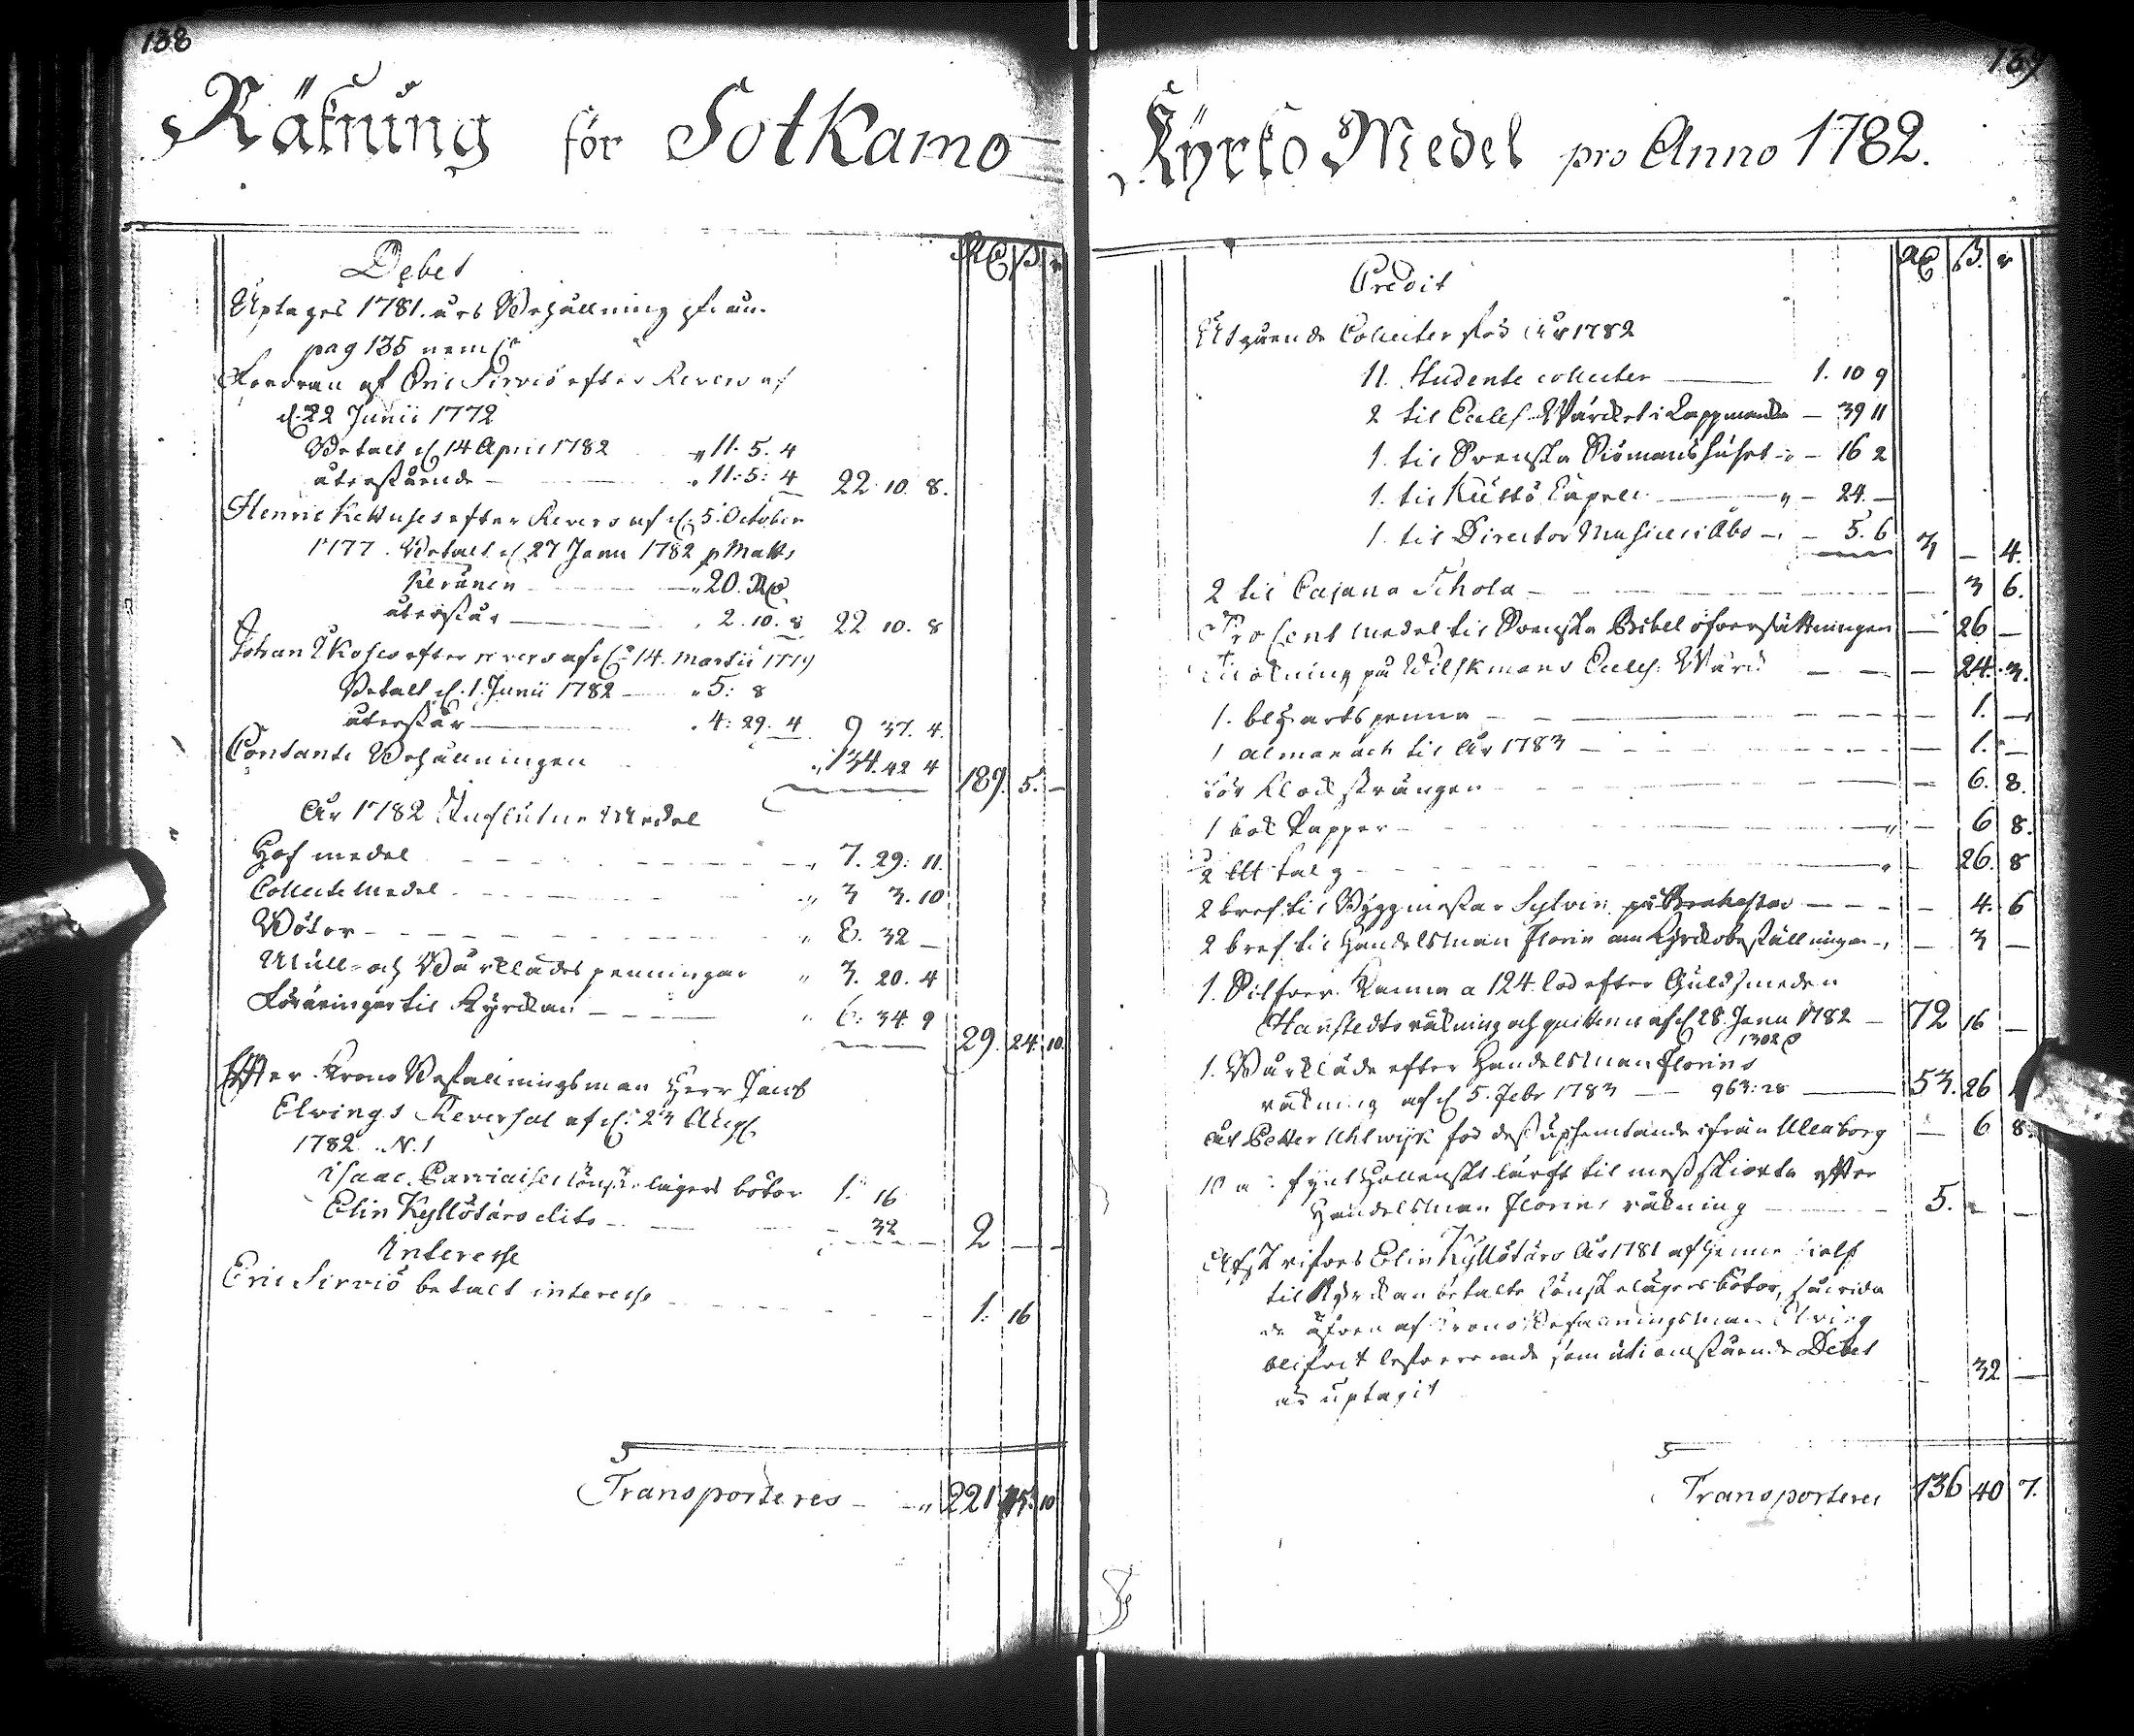 138
Räkning för Sotkamo
Debet
RD ß. r
Uptages 1781. års Behållning ifrån
pag 135 neml:
Fordran af Eric Sirviö efter Revers af
d. 22 Junii 1772
Betalt d. 14 April 1782 " 11. 5. 4
återstående " 11: 5: 4 22. 10. 8.
Henric efter Revers af d. 5. October
1777. Betalt d. 27 Janu 1782 p Matts
Keränen " 20. RD
återstår 2. 10. 8 22 10. 8
Johan efter revers af d. 14. Martii 1779
Betalt d. 1. Junii 1782 " 5: 8
återstår 4: 29. 4 9 37. 4.
Contante Behållningen 134. 42 4 189. 5. -
År 1782 Influtne Medel
Håf medel " 7. 29: 11.
Collecte Medel " 3 3. 10
Böter " 8. 32 -
Mull- och Bårklädes penningar " 3. 20. 4
Föräringar til Kyrckan " 6: 34. 9 29. 24. 10.
Efter Krono Befallningsman Herr Jacob
Elvings Reversal af d. 23 Aug.
1782. N. 1
Isaac lönskelägers böter 1. 16
Elin Kyllötärs dito 32 2 - -
Interesse
Eric Sirviö betalt interesse 1: 16
Transporteres " 221 15. 10
139
Kyrko Medel pro Anno 1782.
Credit
RD ß. r
Utgående Collecter för År 1782
11. Studente collecter 1. 10 9
2 til Eccles. Värcket i Lappmarken - 39 11
1. til Svenska Siömanshuset - 16 2
1. til Kustö Capell " - 24. -
1. til Director Musices i Åbo - 5. 6 3 - 4.
2 til Cajana Schola - 3 6.
Procent medel til Svenska Bibel öfversättningen - 26 -
på Wilskmans Eccles. Wärck - 24. 3.
1. penna - 1. -
1 almanach til År 1783 - 1. -
för Klocksträngen - 6. 8.
1 bok Papper " - 6 8.
2 talg " 26. 8
2 bref til Byggmästar Sylvin på Brahestad - 4. 6
2 bref til Handelsman Florin om Kyrckobeställningar - 3 -
1. Silfver Kanna a 124. lod efter Guldsmeden
Hanstedts räkning och quittence af d. 28. Janu 1782 72 16 -
1302
1. Bårkläde efter Handelsman Florins
räkning af d. 5. Febr 1783 963: 28 53. 26
åt Petter Uhlwijk för dess uphemtande ifrån Uleaborg - 6 8.
10 a fynt Hollenskt lärft til mess skiorta efter
Handelsman Florins räkning 5. - -
Afskrifves Elin Kyllötärs År 1781 af henne sielf
til Kyrckan betalte lönskelägers böter, såvida
de äfven af Krono Befallningsman Elving
blifvit levererade som uti omstående Debet
är uptagit 32 -
Transporteres 136 40 7.